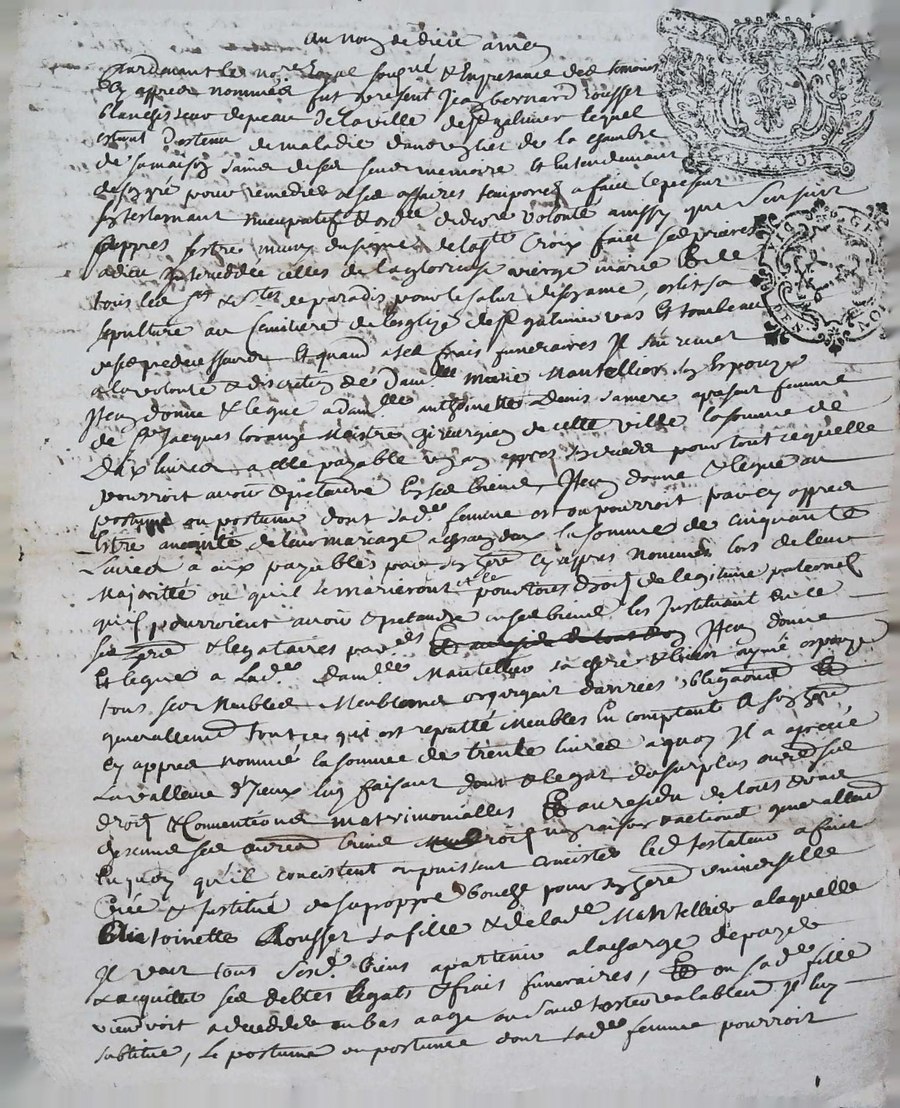 Au nom de dieu amen
Pardevant le nore Royal sousigné & En presance des temoins
Cy appres nommés fut present Jean bernard rousset
blanchisseur de peau de la ville de St galmier lequel
estant detenu de maladie dans le lict de la chambre
de sa maison sain de ses sens memoire & Entendement
de son gré pour remedier a ses affaires temporels a faict le present
son testament nuncupatif & ordre de dre volonté ainsy que s'en suit
appres s'estre muny du signe de la ste Croix faict ses prieres
a dieu Intercedée celles de la glorieuse vierge marie & de
tous les sts & stes de paradis pour le salut de son ame, eslit sa
sepulture au Cemitiere de l'esglize de St galmier vas & tombeau
de ses predecesseurs Et quand a ses frais funeraires Il s'en remet
a la volonté & discretion de Damlle Marie Mantellier son Espouze
Item donne & legue a damlle antoinette Denis sa mere a present femme
de Sr Jacques Maistre chirurgien de cette ville la somme de
Dix livres a elle payable un an appres son deceds pour tout ce quelle
pourroit avoir & pretandre En ses biens, Item donne & legue au
postume ou postumes dont sad. femme est ou pourroit par cy appres
Estre anceinte de leur mariage a chascun deux la somme de cinquante
Livres a eux payables par son here Cy appres nommée lors de leur
Majorité ou quil se marieront pour tous droits de legitime paternel
quil pourroient avoir & pretandre en ses biens les Instituant en ce
ses & legataires par Item donne
Et legue a Lade Damlle Mantellier sa chere & bien aymé espouze
tous ses Meubles Meublans or argent danrées obligaons &
generallemt tout ce qui est reputté Meubles En comptent a son here
cy appres nommé la somme de trente livres a quoy Il a aprecié
La valleur d'Iceux luy faisant & legat du surplus outre ses
droits & Conventions matrimonialles Et au residu de tous &
ses autres biens droits noms raisons & actions generallemt
En quoy qu'il concistent ou puissent concister led testateur a faict
Créé & Institué de sa proppre bouche pour son here universelle
Antoinette Rousset sa fille & de lade Mantellier a laquelle
Il veut tous sesd. biens apartenir a la charge de payer
& acquitter ses debtes legats & frais funeraires, & ou sade fille
viendroit a deceder en bas aage ou sans tester valablemt Il luy
subtitue, Le postume ou postumes dont sade femme pourroit
G. D. LYON